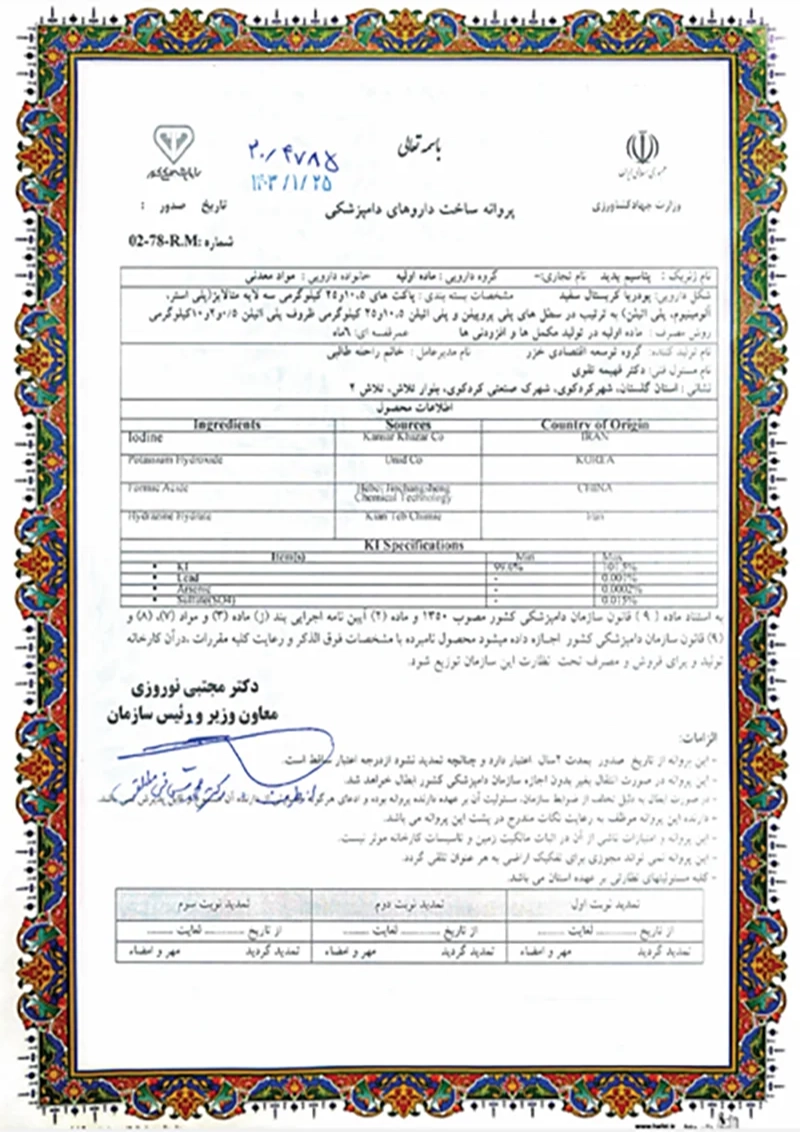 باسمه تعالی
جمهوری اسلامی ایران
وزارت جهاد کشاورزی
۲۰/۴۷۸۵
۱۴۰۳/۱/۲۵
پروانه ساخت داروهای دامپزشکی
تاریخ صدور :
شماره :02-78-R.M
نام ژنریک : پتاسیم یدید نام تجاری:- گروه دارویی : ماده اولیه خانواده دارویی : مواد معدنی
شکل دارویی: پودریا کریستال سفید مشخصات بسته بندی : پاکت های ۱۰،۵و۲۵ کیلوگرمی سه لایه متالایز(پلی استر،
آلومینیوم، پلی اتیلن) به ترتیب در سطل های پلی پروپیلن و پلی اتیلن ۱۰،۵و۲۵ کیلوگرمی ظروف پلی اتیلن ۰/۵و۲و۱۰کیلوگرمی
روش مصرف : ماده اولیه در تولید مکمل ها و افزودنی ها عمرقفسه ای: ۶ماه
نام تولید کننده: گروه توسعه اقتصادی خزر نام مدیرعامل : خانم راحله طالبی
نام مسئول فنی: دکتر فهیمه تقوی
نشانی : استان گلستان، شهرکردکوی، شهرک صنعتی کردکوی، بلوار تلاش، تلاش ۲
اطلاعات محصول
Ingredients Sources Country of Origin
Iodine Kansar Khazar Co IRAN
Potassium Hydroxide Unid Co KOREA
Formic Acide Hebei Jinchangsheng Chemical Technology CHINA
Hydrazine Hydrate Kian Teb Chimie Iran
KI Specifications
Item(s) Min Max
KI 99.0% 101.5%
Lead - 0.001%
Arsenic - 0.0002%
Sulfate(SO4) - 0.015%
به استناد ماده ( ۹ ) قانون سازمان دامپزشکی کشور مصوب ۱۳۵۰ و ماده (۲) آیین نامه اجرایی بند (ز) ماده (۳) و مواد (۷)، (۸) و
(۹) قانون سازمان دامپزشکی کشور اجازه داده میشود محصول نامبرده با مشخصات فوق الذکر و رعایت کلیه مقررات ،درآن کارخانه
تولید و برای فروش و مصرف تحت نظارت این سازمان توزیع شود.
دکتر مجتبی نوروزی
معاون وزیر و رئیس سازمان
الزامات:
- این پروانه از تاریخ صدور بمدت ۲سال اعتبار دارد و چنانچه تمدید نشود ازدرجه اعتبار ساقط است.
- این پروانه در صورت انتقال بغیر بدون اجازه سازمان دامپزشکی کشور ابطال خواهد شد.
- در صورت ابطال به دلیل تخلف از ضوابط سازمان، مسئولیت آن بر عهده دارنده پروانه بوده و ادعای هرگونه
- دارنده این پروانه موظف به رعایت نکات مندرج در پشت این پروانه می باشد.
- این پروانه و امتیازات ناشی از آن در اثبات مالکیت زمین و تاسیسات کارخانه موثر نیست.
- این پروانه نمی تواند مجوزی برای تفکیک اراضی به هر عنوان تلقی گردد.
- کلیه مسئولیتهای نظارتی بر عهده استان می باشد.
تمدید نوبت اول تمدید نوبت دوم تمدید نوبت سوم
از تاریخ .............. لغایت ......... از تاریخ .............. لغایت ......... از تاریخ .............. لغایت .........
تمدید گردید مهر و امضاء تمدید گردید مهر و امضاء تمدید گردید مهر و امضاء